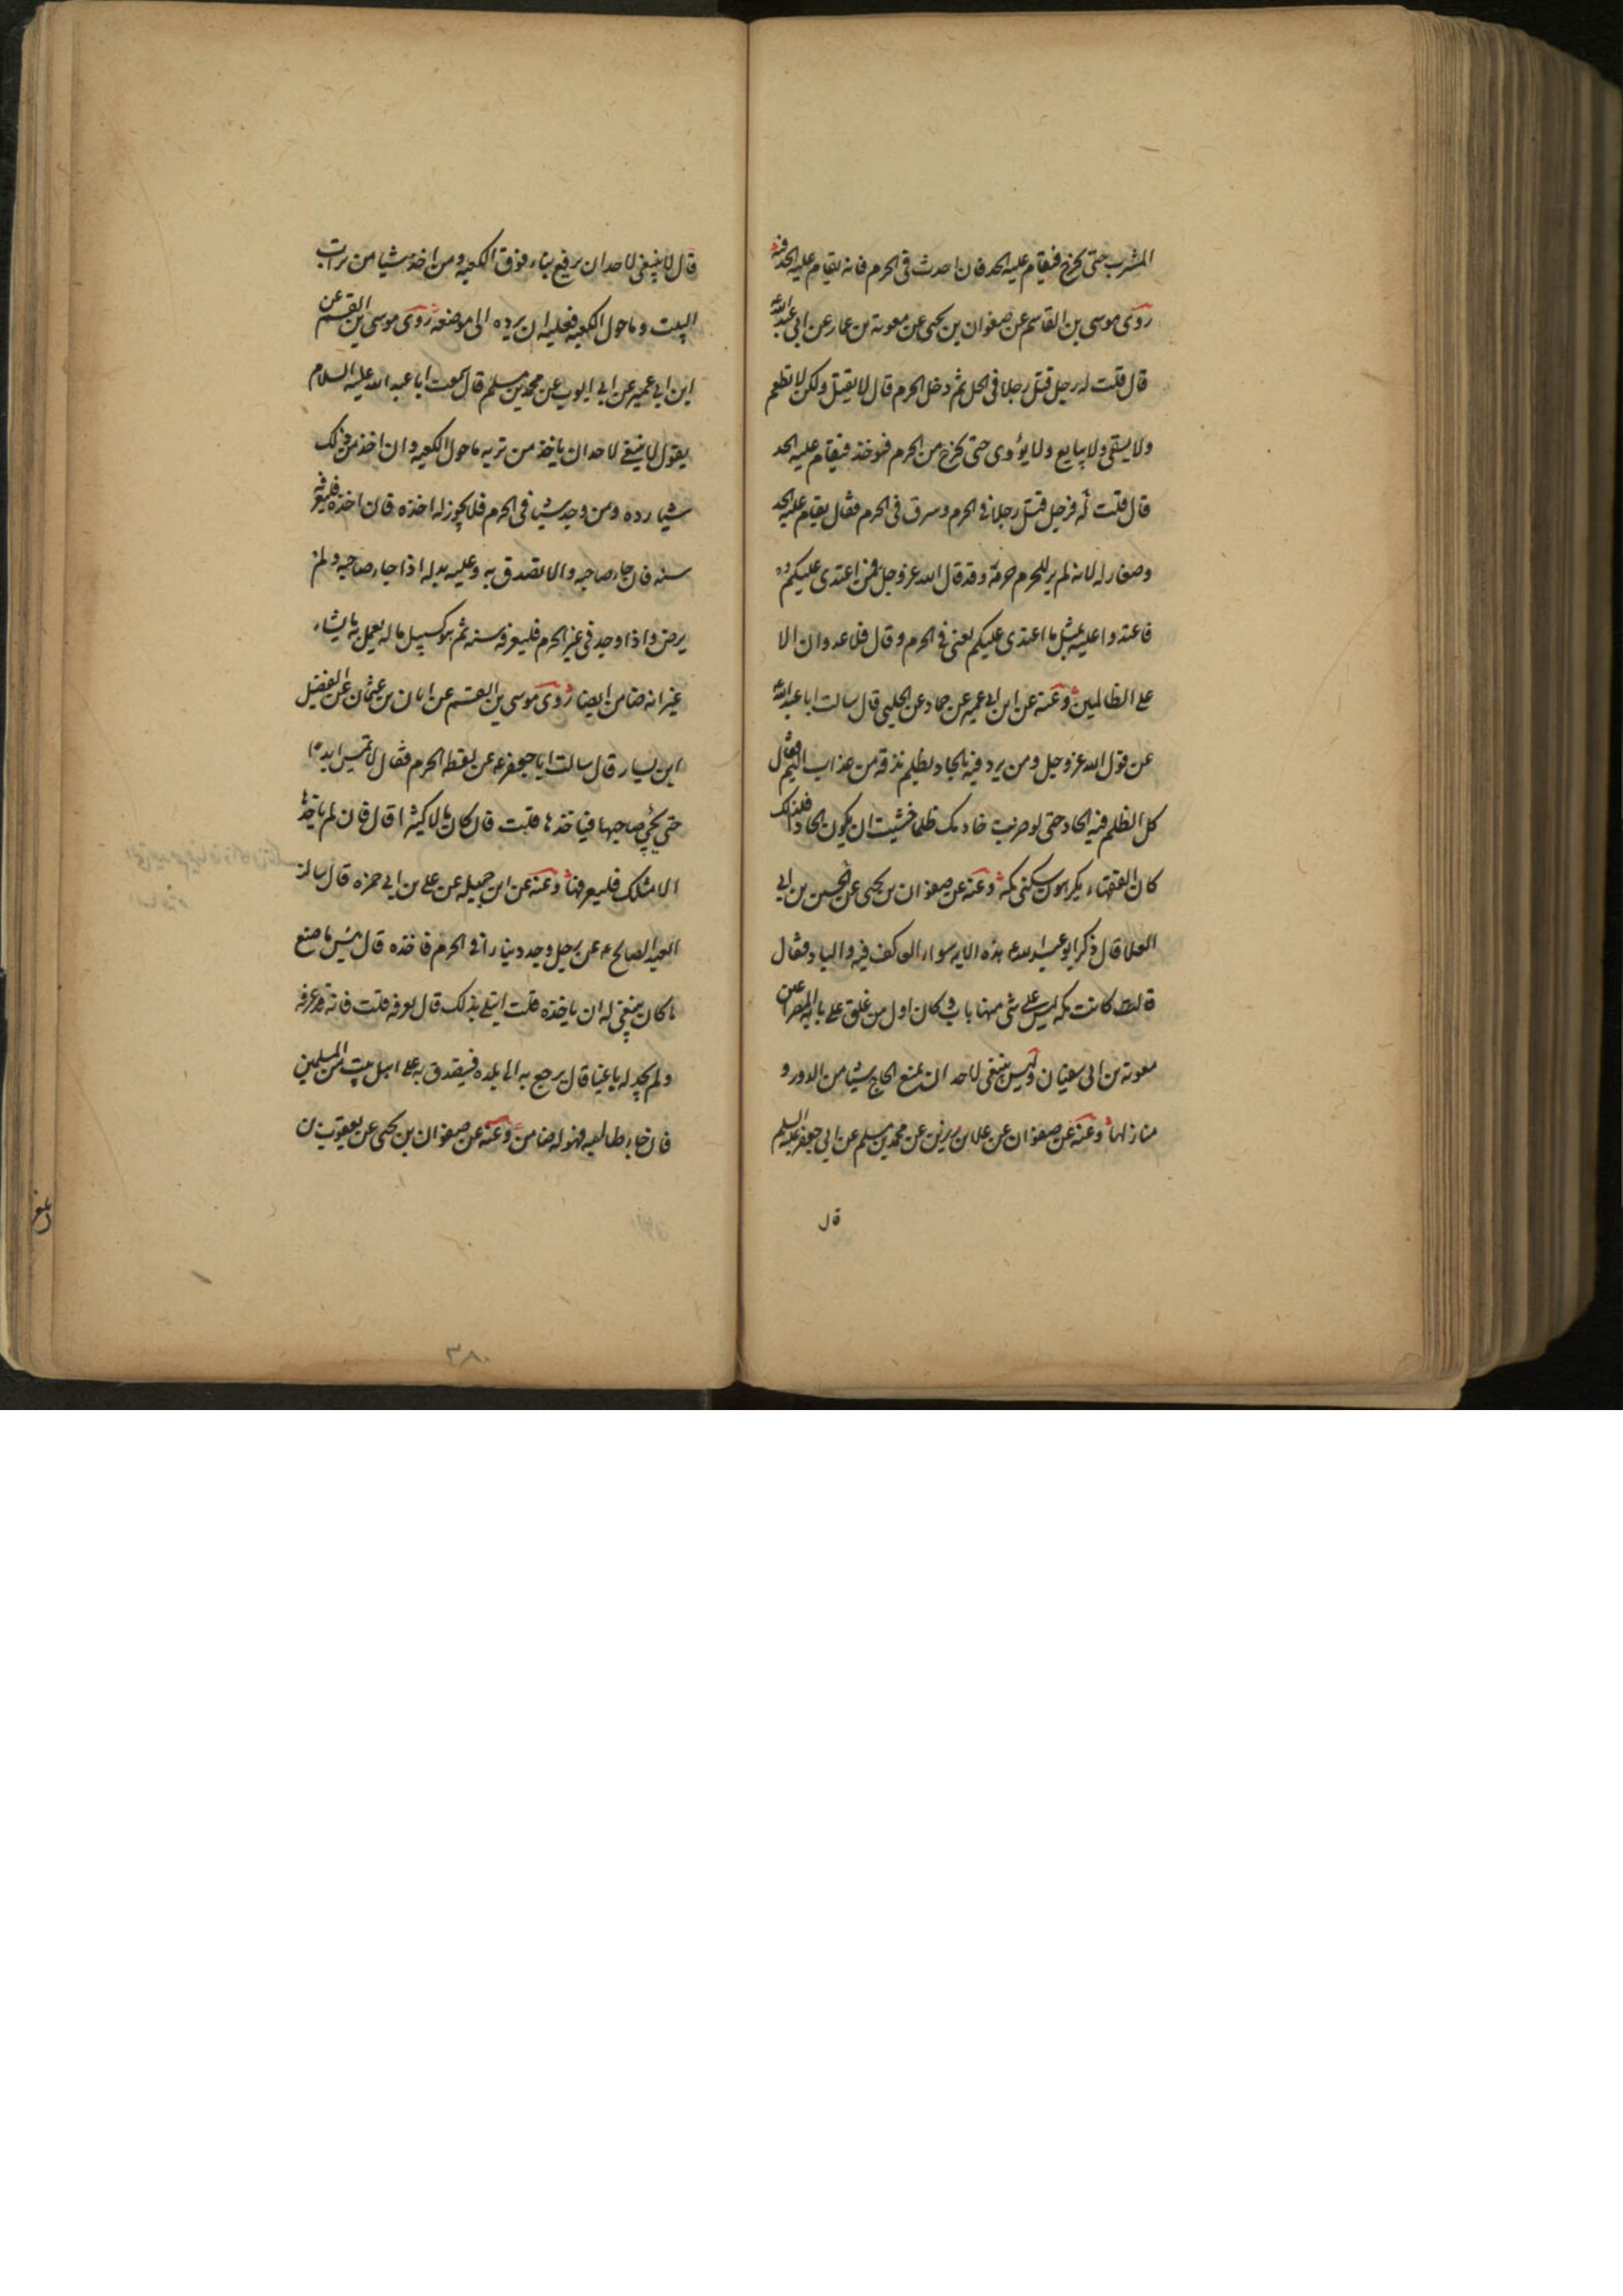 المشرب حتى يخرج فيقام عليه الحد فان احدث في الحرم فانه يقام عليه الحد فيه
روى موسى بن القاسم عن صفوان بن يحيى عن معوية بن عمار عن ابي عبد الله
قال قلت له رجل قتل رجلا في الحل ثم دخل الحرم قال لا يقتل ولكن لا يطعم
ولا يسقى ولا يبايع ولا يؤوى حتى يخرج من الحرم فيؤخذ فيقام عليه الحد
قال قلت له فرجل قتل رجلا في الحرم وسرق في الحرم فقال يقام عليه الحد
وصغار له لانه لم ير للحرم حرمة وقد قال الله عز وجل فمن اعتدى عليكم
فاعتدوا عليه بمثل ما اعتدى عليكم يعنى في الحرم وقال فلا عدوان الا
على الظالمين وعنه عن ابن ابي عمير عن حماد عن الحلبي قال سالت ابا عبد الله
عن قول الله عز وجل ومن يرد فيه بالحاد بظلم نذقه من عذاب اليم فقال
كل الظلم فيه الحاد حتى لو ضربت خادمك ظلما خشيت ان يكون الحادا فلذلك
كان الفقهاء يكرهون سكنى مكة وعنه عن صفوان بن يحيى عن الحسين بن ابي
العلا قال ذكر ابو عبد الله ع هذه الاية سواء العاكف فيه والباد فقال
كانت مكة ليس على شئ منها باب وكان اول من علق على بابه المصراعين
معوية بن ابي سفيان وليس ينبغي لاحد ان يمنع الحاج شيئا من الدور و
منازلها وعنه عن صفوان عن علا بن رزين عن محمد بن مسلم عن ابي جعفر عليه السلم
قال
قال لا ينبغى لاحد ان يرفع بناء فوق الكعبه ومن اخذ شيئا من تراب
البيت وما حول الكعبه فعليه ان يرده الى موضعه روى موسى بن القسم عن
ابن ابي عمير عن ابي ايوب عن محمد بن مسلم قال سمعت ابا عبد الله عليه السلام
يقول لا ينبغي لاحد ان ياخذ من تربه ما حول الكعبه وان اخذ من ذلك
شيئا رده ومن وجد شيئا في الحرم فلا يجوز له اخذه فان اخذه فليعرفه
سنه فان جاء صاحبه والا تصدق به وعليه بدله اذا جاء صاحبه ولم
يرض واذا وجد في غير الحرم فليعرفه سنه ثم هو كسبيل ماله يعمل به ما يشاء
غير انه ضامن ايضا روى موسى بن القسم عن ابان بن عثمان عن الفضيل
ابن يسار قال سالت ابا جعفر ع عن لقطة الحرم فقال لا تمس ابدا
حتى يجئ صاحبها فياخذها قلت فان كان مالا كثيرا قال فان لم ياخذها
الا مثلك فليعرفها وعنه عن ابن جبيله عن على بن ابي حمزه قال سالت
العبد الصالح ع عن رجل وجد دينارا في الحرم فاخذه قال بئس ما صنع
ما كان ينبغي له ان ياخذه قلت ابتلى بذلك قال يعرفه قلت فانه قد عرفه
ولم يجد له باغيا قال يرجع به الى بلده فيتصدق به على اهل بيت من المسلمين
فان جاء طالبه فهو له ضامن وعنه عن صفوان بن يحيى عن يعقوب بن
بلغ
٣٨٠